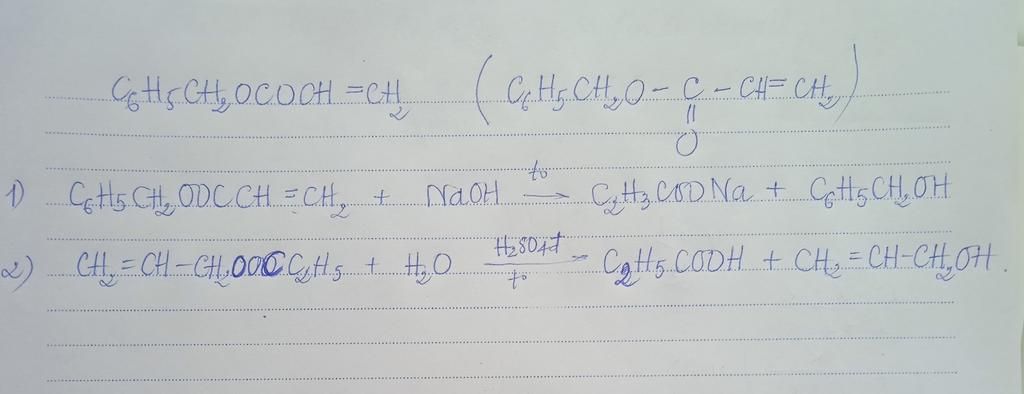 C₆H₅CH₂OCOCH=CH₂ (C₆H₅CH₂O-C-CH=CH₂)
||
O
1) C₆H₅CH₂OOCCH=CH₂ + NaOH t° → C₂H₃COONa + C₆H₅CH₂OH
2) CH₂=CH-CH₂OOCC₂H₅ + H₂O H₂SO₄đ t° → C₂H₅COOH + CH₂=CH-CH₂OH.